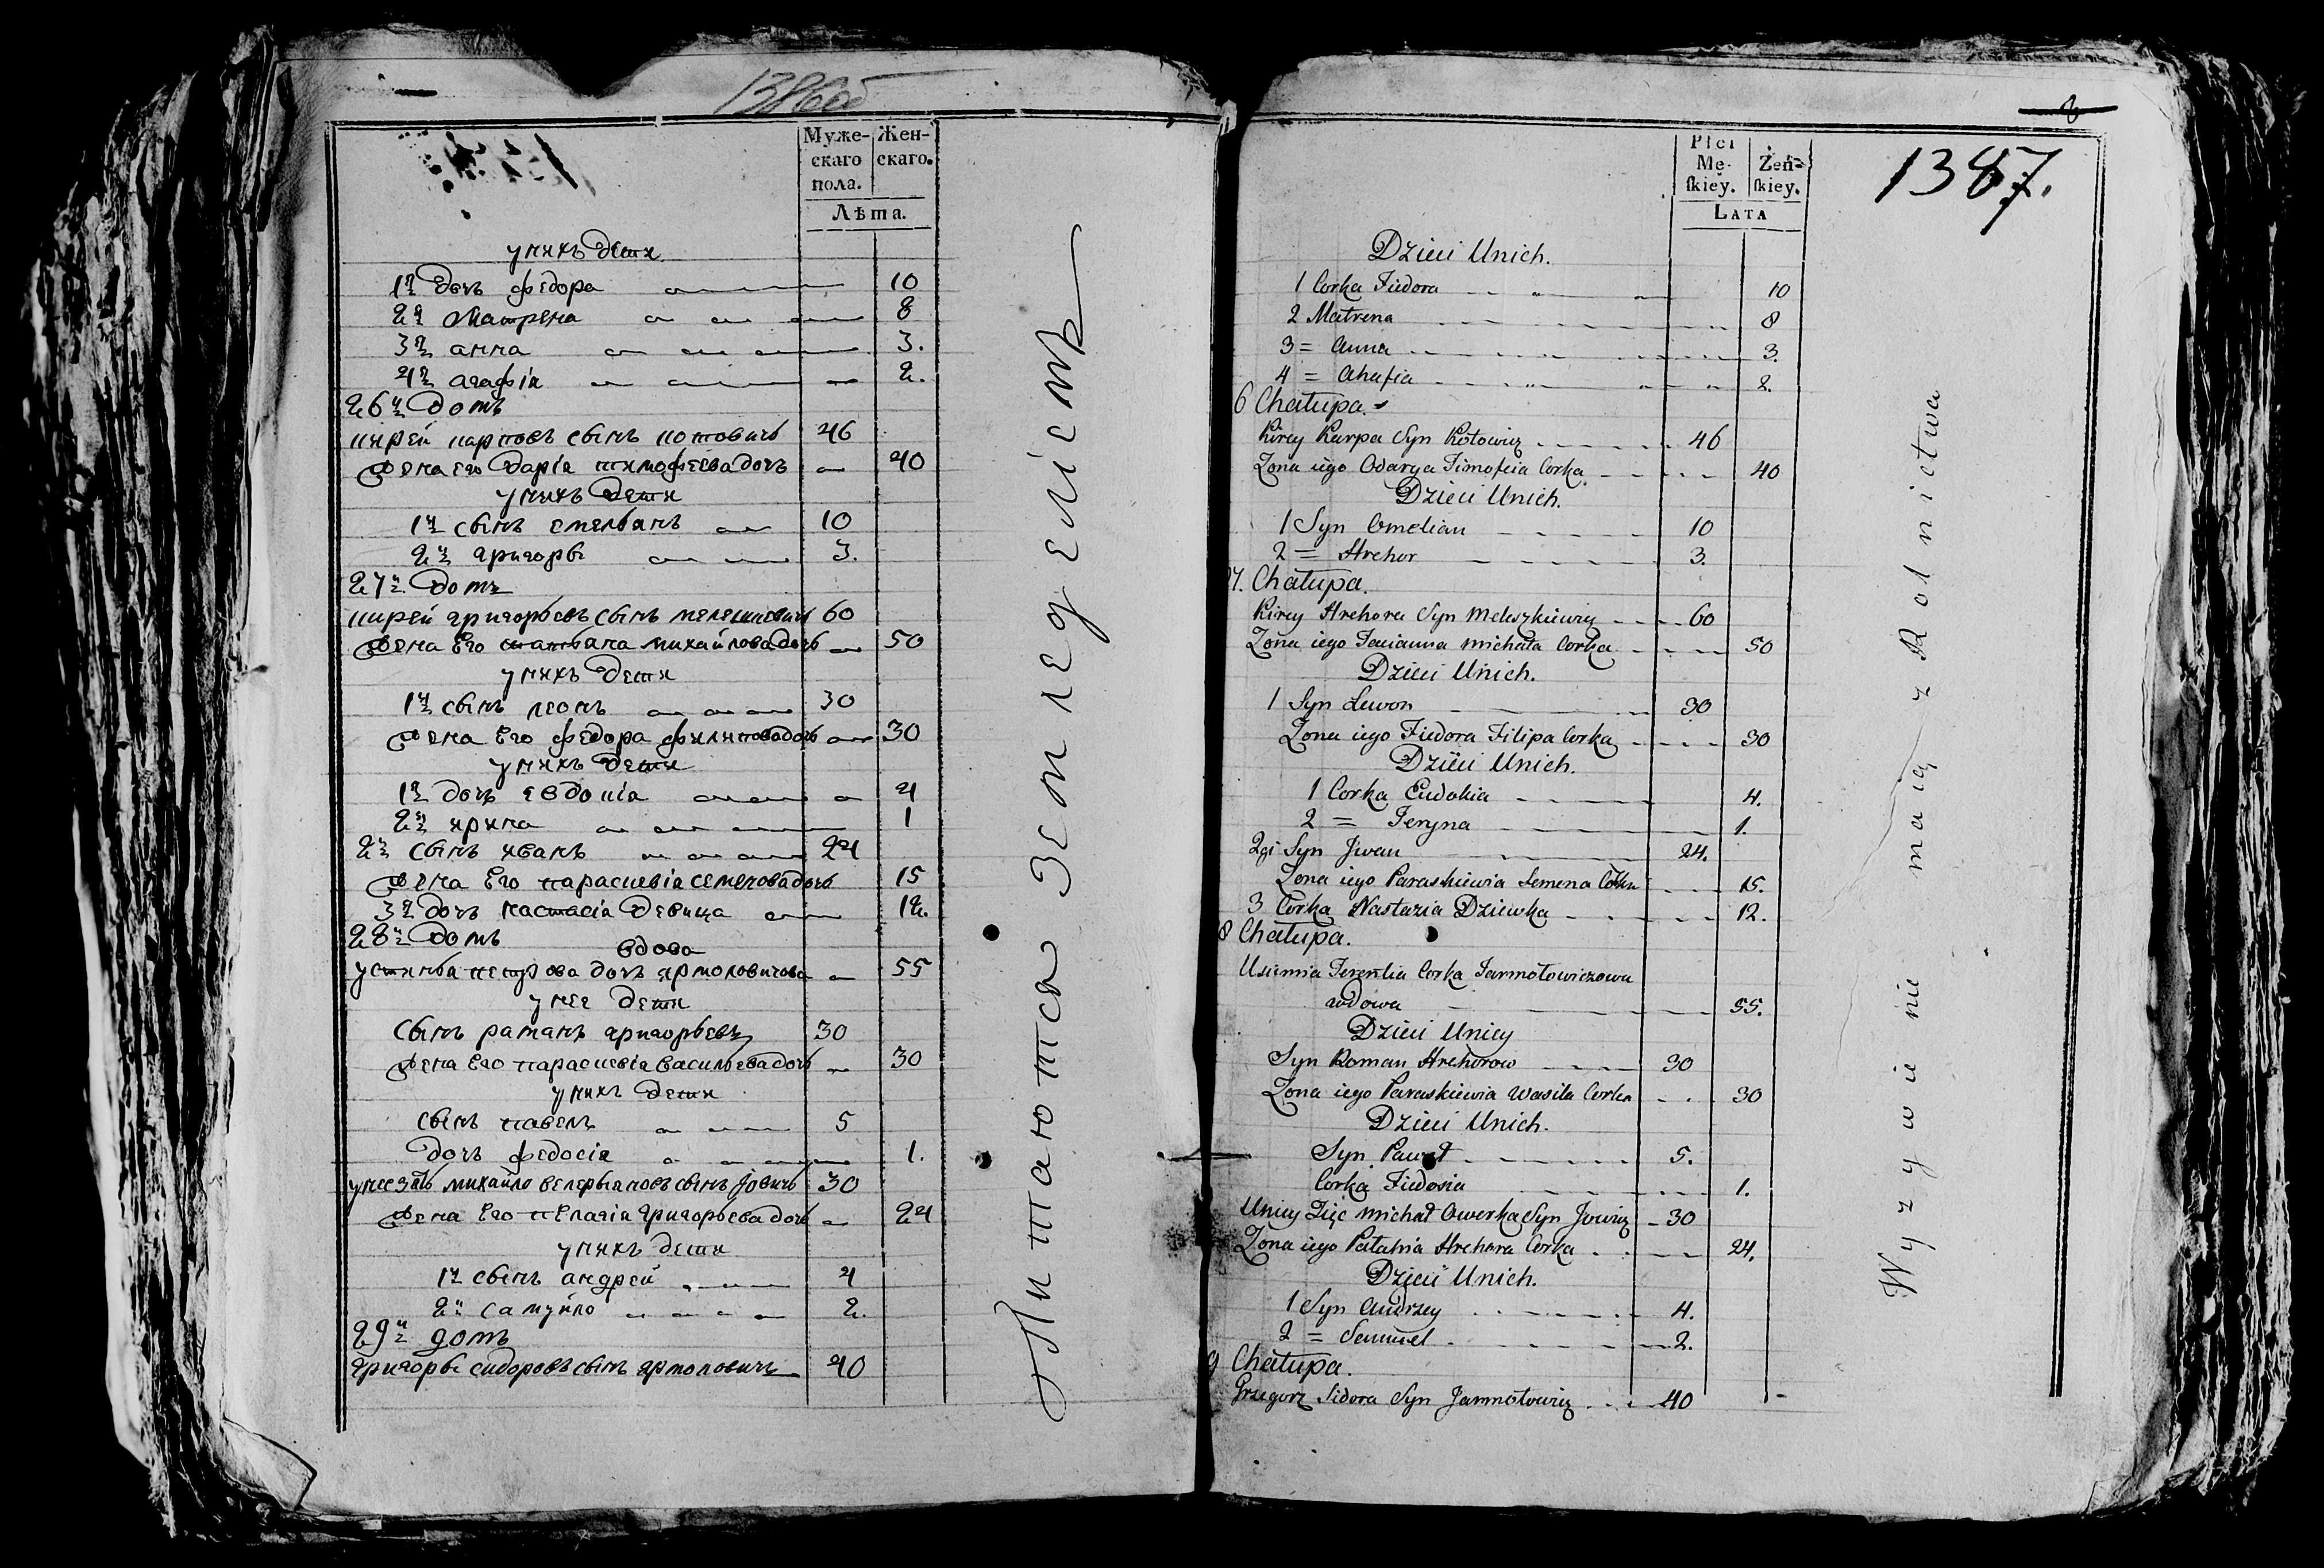 1386об
Муже-
скаго
пола.
Жен-
скаго.
Лѣта.
у нихъ дети
1я дочь федора 10
2я Матрена 8
3я анна 3.
4я агафія 2.
26й домъ
кирей карповъ сынъ котовичь 46
жена его дарія тимофеева дочь 40
у нихъ дети
1й сынъ емельянъ 10
2й григорьи 3.
27й домъ
кирей григорьевъ сынъ мелешкевичь 60
жена его татьяна михайлова дочь 50
у нихъ дети
1й сынъ леонъ 30
жена его федора филипова дочь 30
у нихъ дети
1я дочь евдокія 4
2я ирина 1
2й сынъ иванъ 24
жена его параскевія семенова дочь 15
3я дочь настасія девица 12.
28й домъ
вдова
устинья петрова дочь ярмоловичова 55
у нее дети
сынъ раманъ григорьевъ 30
жена его параскевія васильева дочь 30
у нихъ дети
сынъ павелъ 5
дочь федосія 1.
у нее зять михайло велерьяновъ сынъ јовичь 30
жена его пелагія григорьева дочь 24
у нихъ дети
1й сынъ андрей 4
2й самуйло 2.
29й домъ
григорьи сидоровъ сынъ ярмоловичь 40
Питаются Земледелiемъ
8
1387.
Płci
Mę-
skiey.
Żeń-
skiey.
LATA
Dzieci Unich.
1 Corka Fiedora 10
2 Matrena 8
3 = Anna 3.
4 = Ahafia 2.
6 Chałupa.
Kirey Karpa Syn Kotowicz 46
Zona iego Odarya Timofeia Corka 40
Dzieci Unich.
1 Syn Omelian 10
2 = Hrehor 3.
27. Chałupa.
Kirey Hrehora Syn Meleszkiewicz 60
Zona iego Tacianna Michała Corka 50
Dzieci Unich.
1 Syn Lewon 30
Zona iego Fiedora Filipa Corka 30
Dzieci Unich.
1 Corka Eudokia 4.
2 = Jeryna 1.
2gi Syn Jwan 24.
Zona iego Paraskiewia Semena Corka 15.
3 Corka Nastazia Dziewka 12.
8 Chałupa.
Usimia Terentia Corka Jarmołowiczowa
wdowa 55.
Dzieci Uniey
Syn Roman Hrehorow 30
Zona iego Paraskiewia Wasila Corka 30
Dzieci Unich.
Syn Paweł 5.
Corka Fiedosia 1.
Uniey Zięc Michał Owerka Syn Jowicz 30
Zona iego Pałahia Hrehora Corka 24.
Dzieci Unich.
1 Syn Andrzey 4.
2 = Samuel 2.
9 Chałupa.
Grzegorz Sidora Syn Jarmołowicz 40
Wyzywienie maią z Rolnictwa